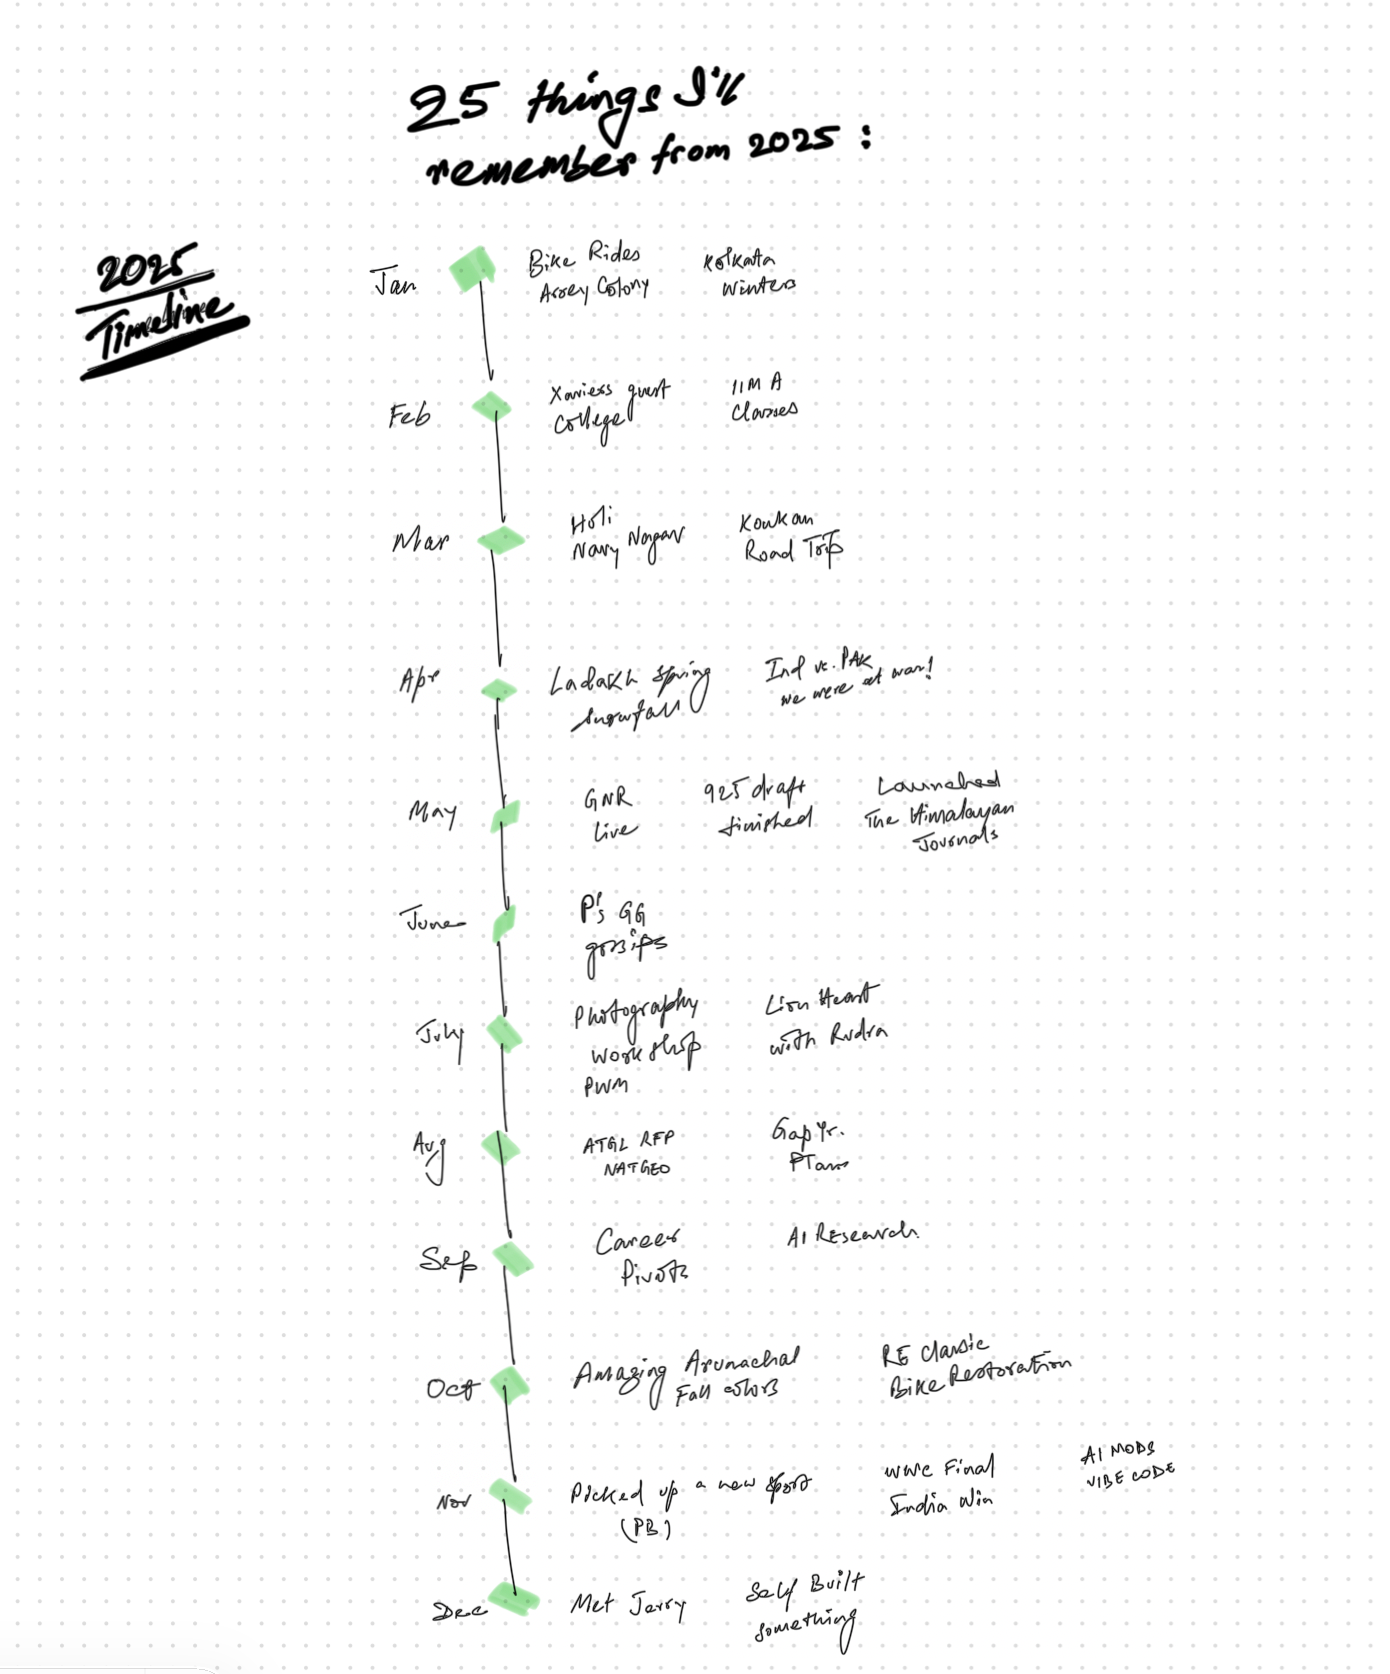 25 things I'll
remember from 2025 :
2025
Timeline
Jan
Bike Rides
Aarey Colony
Kolkata
Winters
Feb
Xaviers guest
College
IIM A
Classes
Mar
Holi
Navy Nagar
Konkan
Road Trip
Apr
Ladakh Spring
Snowfall
Ind vs. PAK
we were at war!
May
GNR
Live
925 draft
finished
Launched
The Himalayan
Journals
June
P's GG
gossips
July
Photography
Workshop
PWM
Lion Heart
with Rudra
Aug
ATGL RFP
NATGEO
Gap Yr.
Plans
Sep
Career
Pivots
AI Research.
Oct
Amazing Arunachal
Fall colors
RE Classic
Bike Restoration
Nov
Picked up a new sport
(PB)
WWC Final
India Win
AI MODS
VIBE CODE
Dec
Met Jerry
Self Built
something